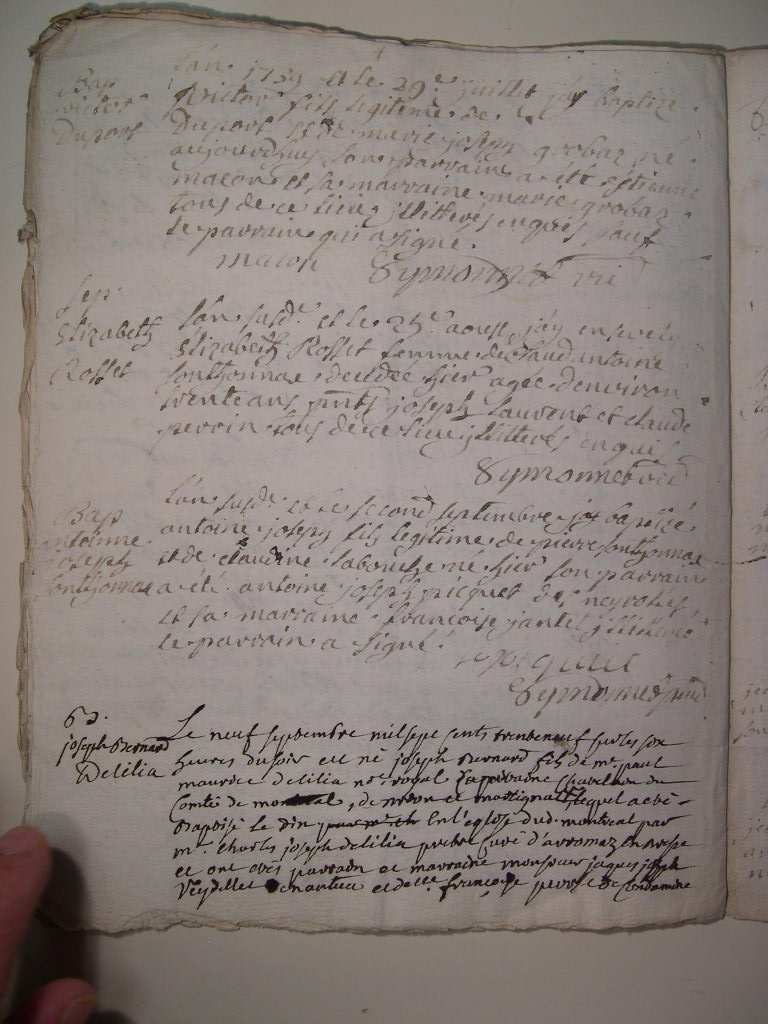 Bap
victor
Duport
L'an 1739 et le 29e juillet j'ay baptizé
victor fils legitime de
Duport et de marie joseph grobaz né
aujourdhuy son parrain a été étienne
macon et sa marraine marie grobaz
tous de ce lieu illitterés enquis sauf
le parrain qui a signé.
macon Symonnet vri
Sep.
Elizabeth
Rosset
L'an susd. et le 25e aoust j'ay enseveli
Elizabeth Rosset femme de claud antoine
sonthonnax decedée hier agée d'environ
trente ans pnts joseph Laurent et claude
perrin tous de ce lieu illitterés enquis
Symonnet vri
Bap
antoinne
joseph
sonthonnax
L'an susd. et le second septembre jay baptizé
antoine joseph fils legitime de pierre sonthonnax
et de claudine Labouche né hier son parrain
a été antoine joseph picquet des neyrolles
et sa marraine francoise jantet illiterée
le parrain a signé
Symonnet
joseph Bernard
Delilia
Le neuf septembre mil sept cents trente neuf sur les six
heures du soir est né joseph Bernard fils de mr. paul
maurice Delilia not royal chatelain du
Comté de montreal, de et martignat, lequel a été
Baptisé le dix En l'eglise dud. montreal par
mr. Charles joseph Delilia prestre curé d'arromaz
et ont étés parrain et marraine monsieur jaques joseph
Nantua et delle. françoise de Condamine